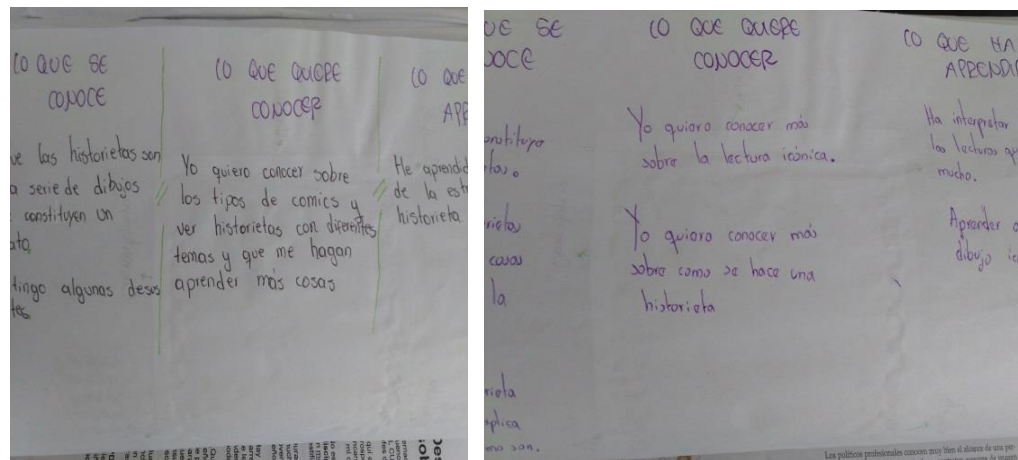 LO QUE SE
CONOCE
ue las historietas son
a serie de dibujos
constituyen un
ata
tingo algunas desus
tes.
LO QUE QUIERE
CONOCER
Yo quiero conocer sobre
los tipos de comics y
ver historietas con diferentes
temas y que me hagan
aprender más cosas
LO QUE
APR
He aprendid
de la est
historieta
UE SE
NOCE
constituye
tas.
rietas
cosas
la
rieta
xplica
mo son.
LO QUE QUIERE
CONOCER
Yo quiero conocer más
sobre la lectura icónica.
Yo quiero conocer más
sobre como se hace una
historieta
LO QUE HA
APRENDI
Ha interpretar
las lecturas qu
mucho.
Aprender a
dibujo ic
Los políticos profesionales conocen muy bien el alcance de una per-